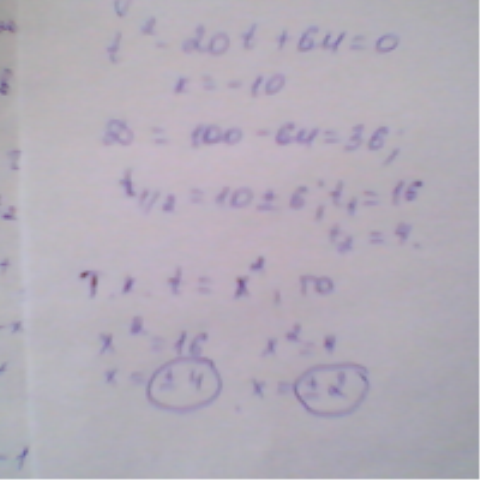 t² - 20t + 64 = 0
к = -10
D = 100 - 64 = 36;
t₁/₂ = 10 ± 6; t₁ = 16
t₂ = 4.
Т.к. t = x², то
x² = 16 x² = 4
x = ± 4 x = ± 2